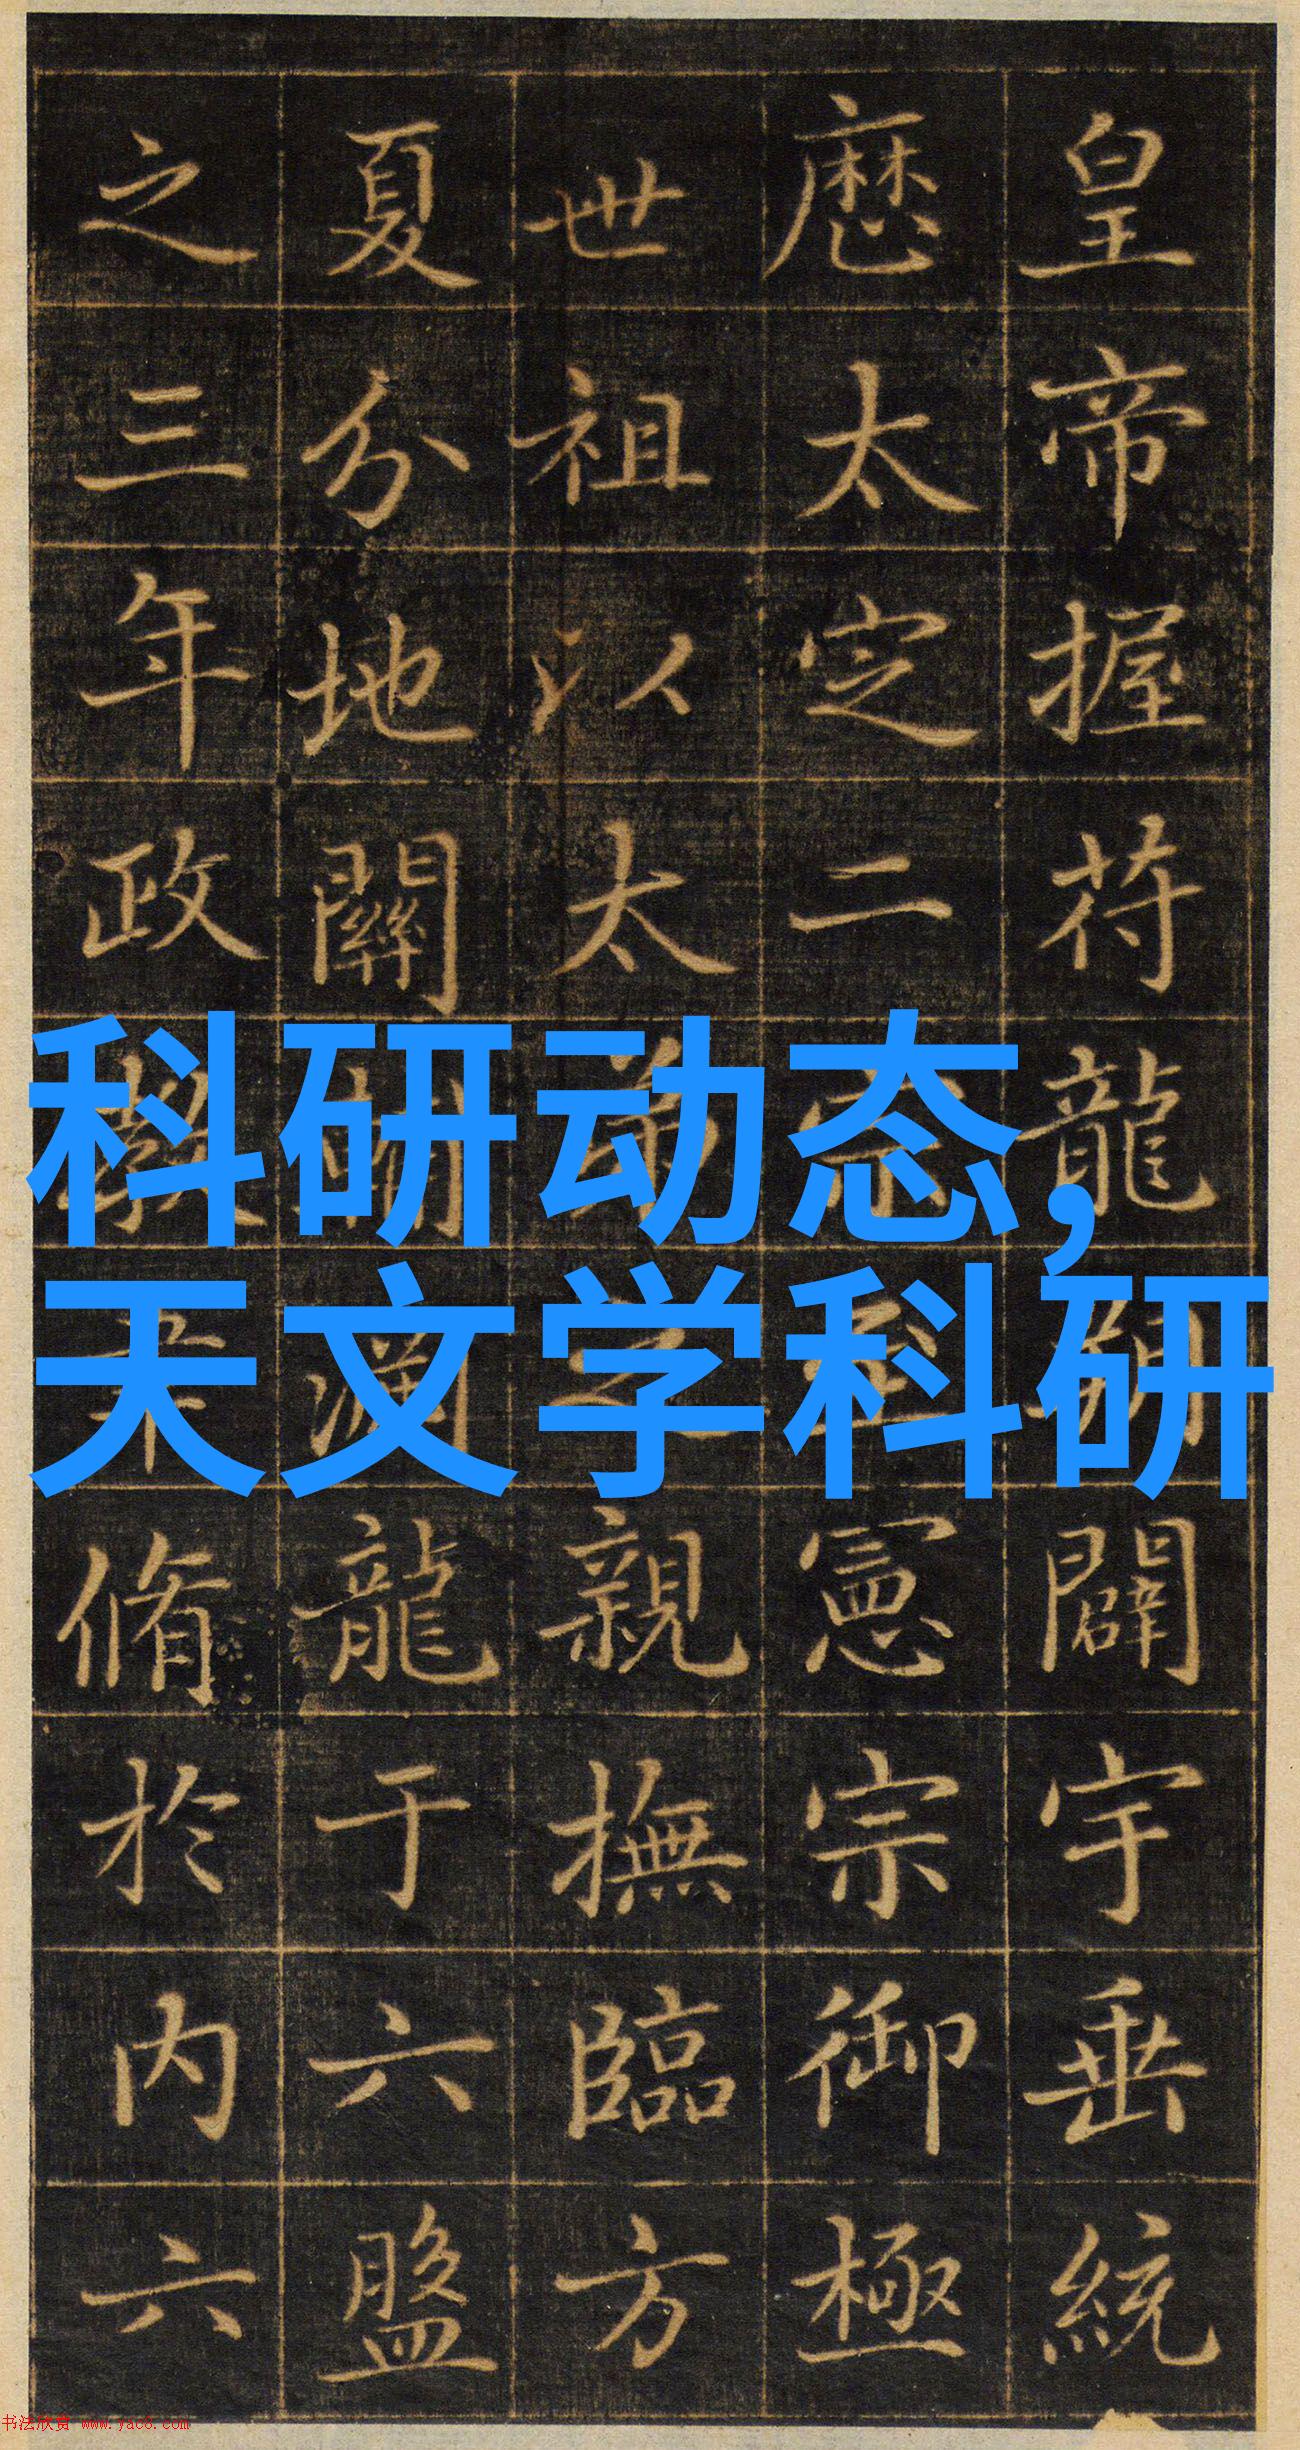 皇帝握苻龍朔闢宇垂統
歷太定二宗至憲宗御極
世祖以太弟之親撫臨方
夏分地關輔淵龍于六盤
之三年政脩於内六
科研动态,
天文学科研
书法欣赏 www.yac8.com